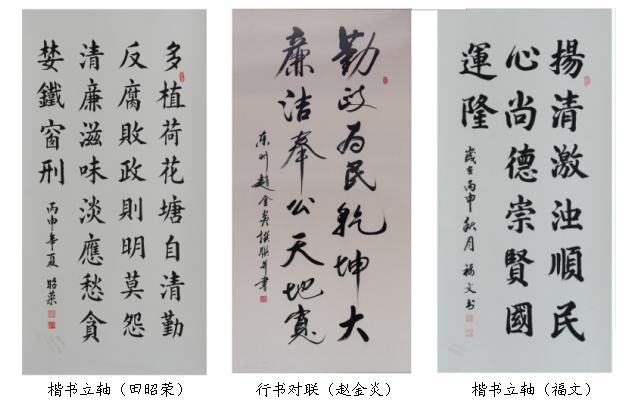 多植荷花塘自清勤
反腐敗政則明莫怨
清廉滋味淡應愁貪
婪鐵窗刑
丙申年夏 昭荣
勤政为民乾坤大
廉洁奉公天地寬
趙金炎撰联并書
揚清激浊順民
心尚德崇賢國
運隆
歲在丙申秋月 福文书
楷书立轴（田昭荣）
行书对联（赵金炎）
楷书立轴（福文）